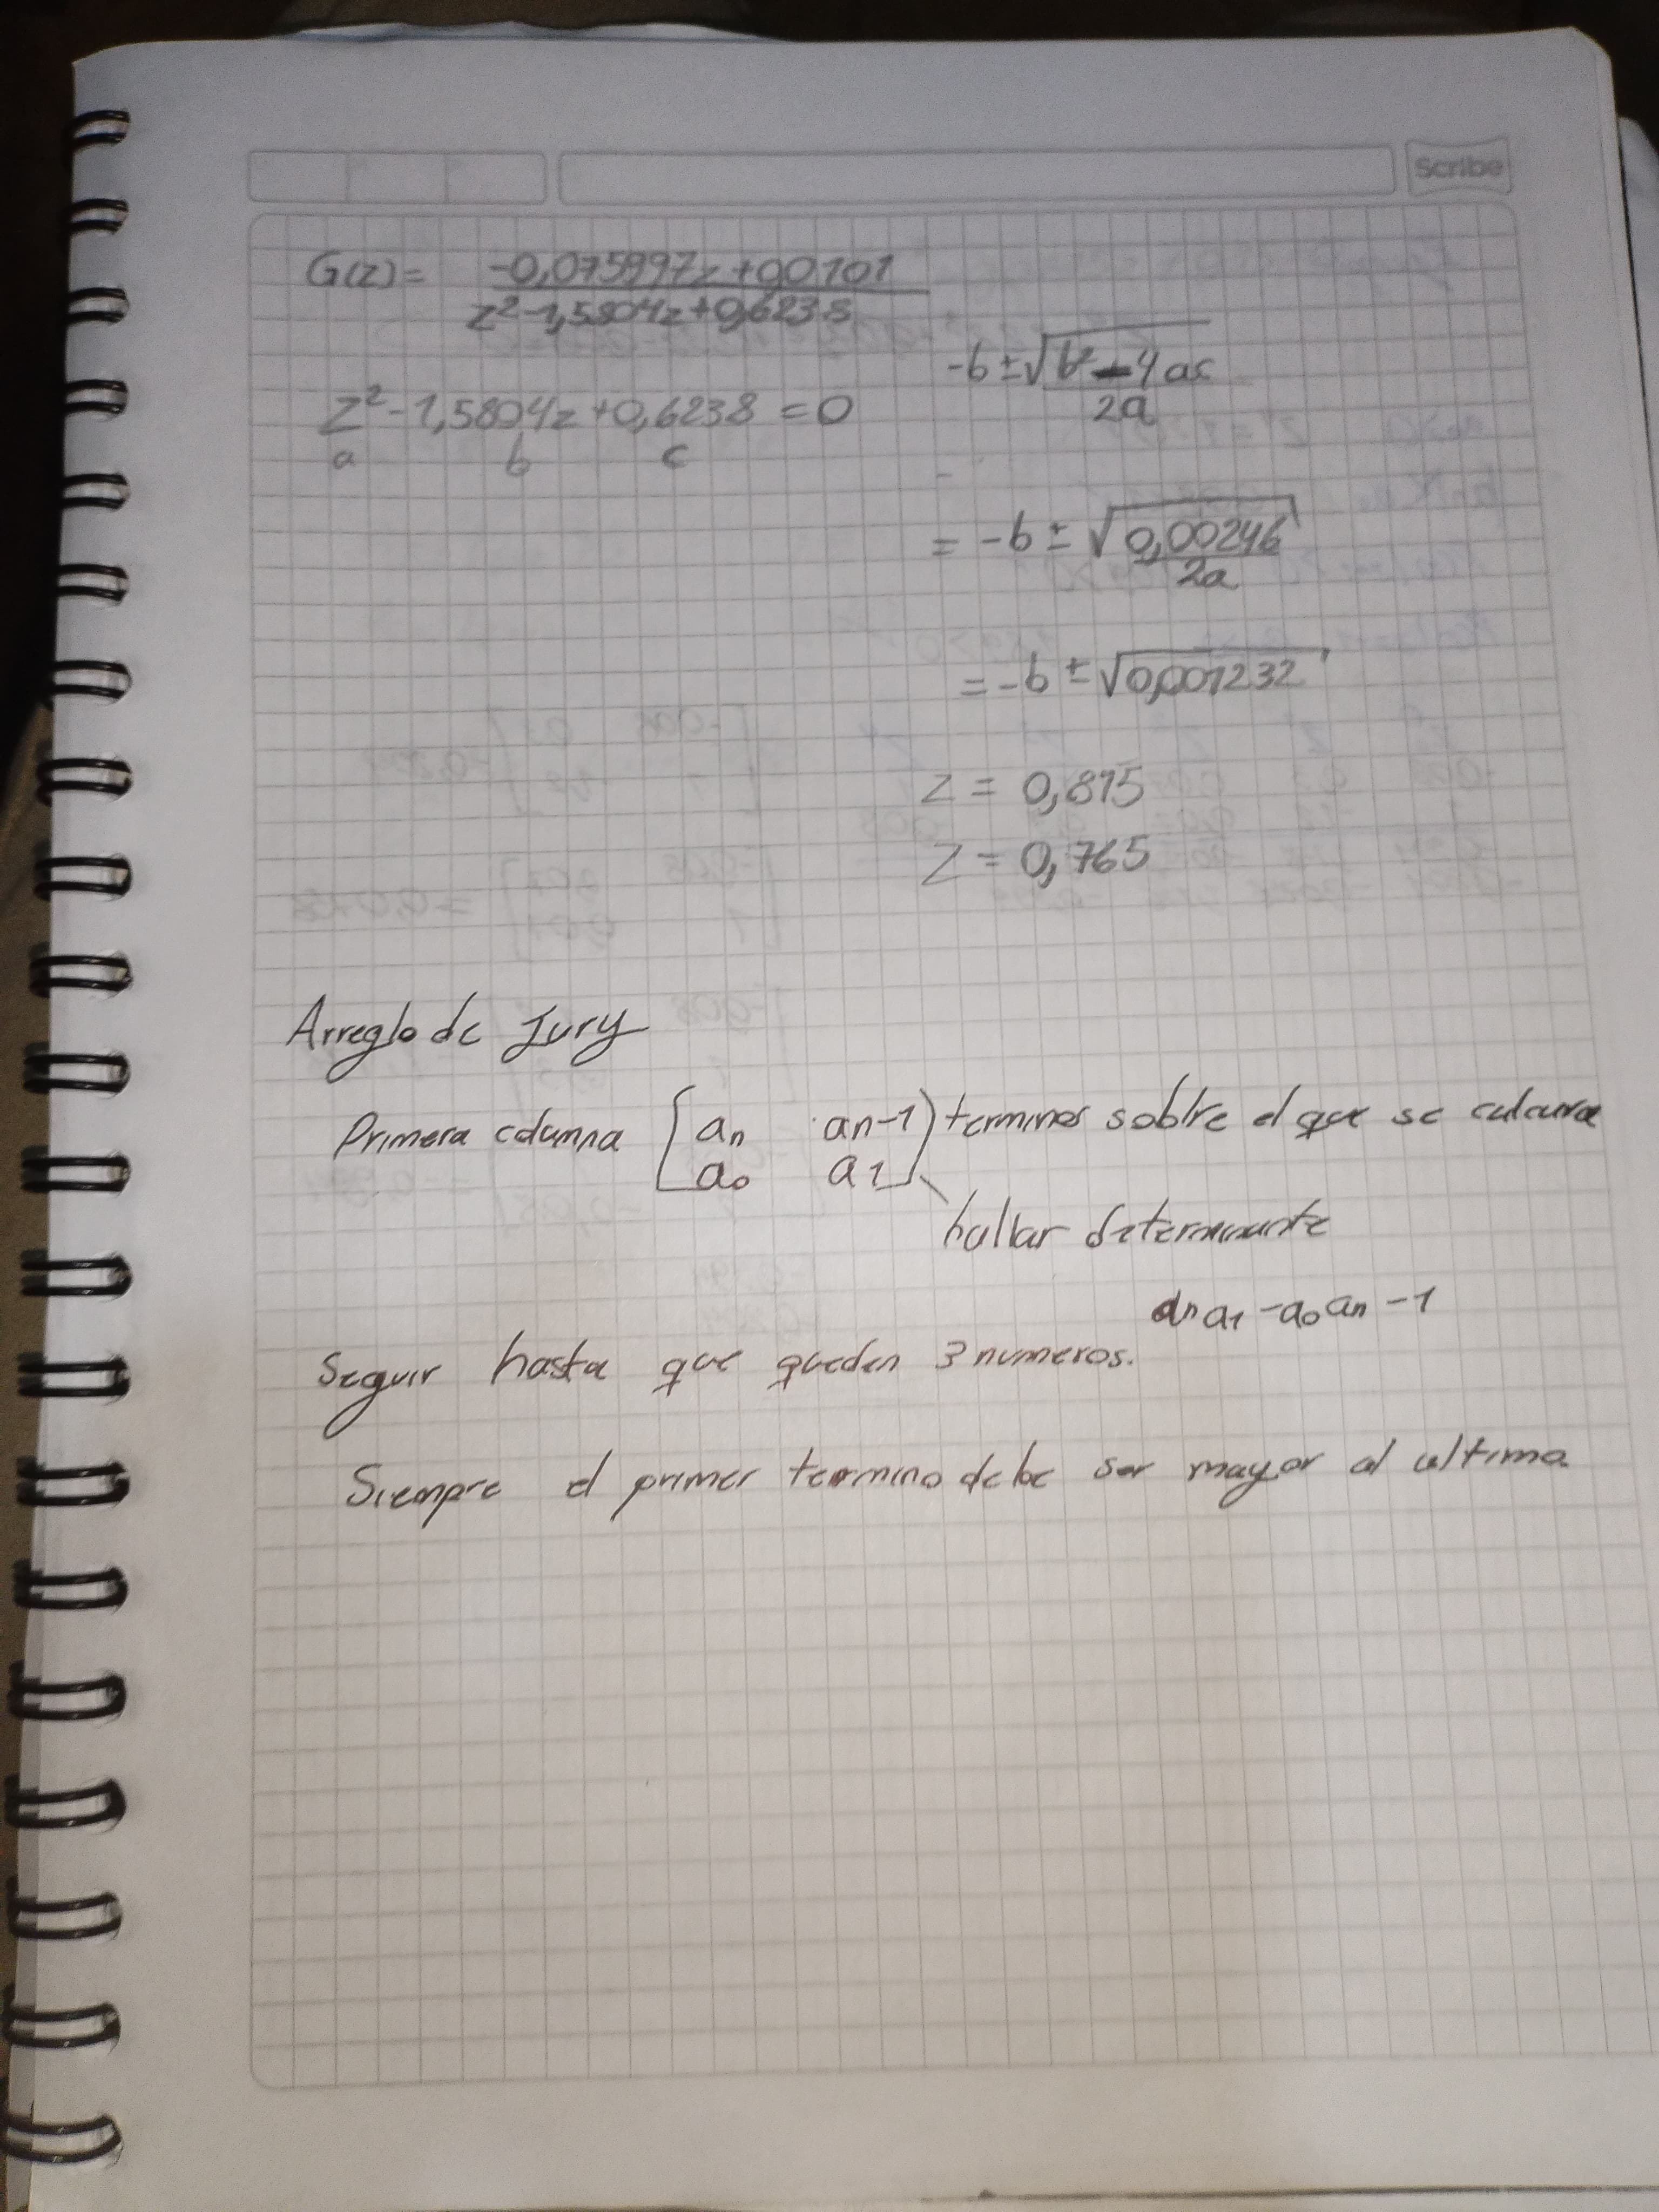 Scribe
G(z) = -0,075997z+00101
z²-1,5804z+0,6238
-b±√b²-4ac
2a
z²-1,5804z+0,6238 = 0
a b c
= -b ± √0,00246
2a
= -b ± √0,001232
z = 0,815
z = 0,765
Arreglo de Jury
Primera columna [an an-1] terminos soblre el que se
a0 a1
hallar determinante
an a1 - a0 an -1
Seguir hasta que queden 3 numeros.
Siempre el primer termino debe ser mayor al ultimo.